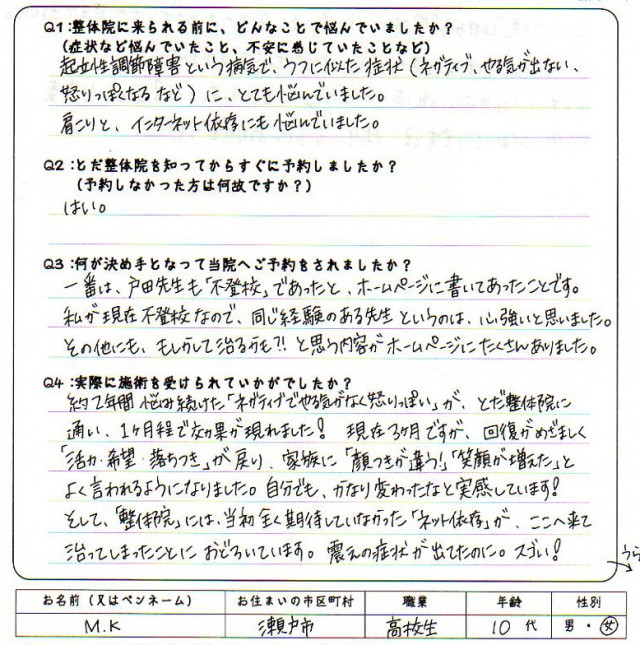 Q1:整体院に来られる前に、どんなことで悩んでいましたか?
(症状など悩んでいたこと、不安に感じていたことなど)
起立性調節障害という病気で、うつに似た症状(ネガティブ、やる気が出ない、
怒りっぽくなるなど)に、とても悩んでいました。
肩こりと、インターネット依存にも悩んでいました。
Q2:とだ整体院を知ってからすぐに予約しましたか?
(予約しなかった方は何故ですか?)
はい。
Q3:何が決め手となって当院へご予約をされましたか?
一番は、戸田先生も「不登校」であったと、ホームページに書いてあったことです。
私が現在不登校なので、同じ経験のある先生というのは、心強いと思いました。
その他にも、もしかして治るかも?!と思う内容がホームページにたくさんありました。
Q4:実際に施術を受けられていかがでしたか?
約2年間悩み続けた「ネガティブでやる気がなく怒りっぽい」が、とだ整体院に
通い、1ヶ月程で効果が現れました! 現在3ヶ月ですが、回復がめざましく
「活力・希望・落ちつき」が戻り、家族に「顔つきが違う!」「笑顔が増えた」と
よく言われるようになりました。自分でも、かなり変わったなと実感しています!
そして、「整体院」には、当初全く期待していなかった「ネット依存」が、ここへ来て
治ってしまったことにおどろいています。震えの症状が出てたのに。スゴい!
うら
お名前(又はペンネーム) お住まいの市区町村 職業 年齢 性別
M.K 瀬戸市 高校生 10代 男・女